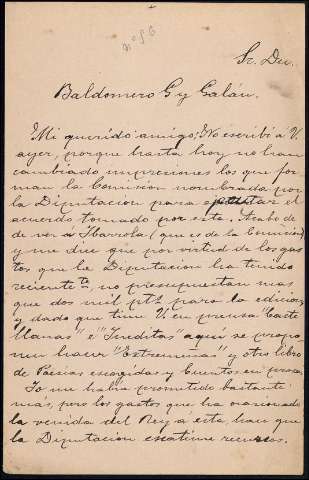 nº 56
Sr. Dn.
Baldomero G y Galán.
Mi querido amigo: No escribí á V.
ayer, porque hasta hoy no han
cambiado impresiones los que for
man la Comisión nombrada por
la Diputación para ejecutar el
acuerdo tomado por esta. Acabo de
de ver á Ibarrola (que es de la Comisión)
y me dice que por virtud de los gas
tos que la Diputación ha tenido
recientete, no presupuestan mas
que dos mil ptas para la edición
y dado que tiene V. en prensa "Caste
llanas" é "Ineditas" aquí se propo
nen hacer "Extremeñas" y otro libro
de Poesias escogidas y Cuentos en prosa.
Yo me había prometido bastante
más, pero los gastos que ha ocasionado
la venida del Rey á esta, hacen que
la Diputación escatime recursos.